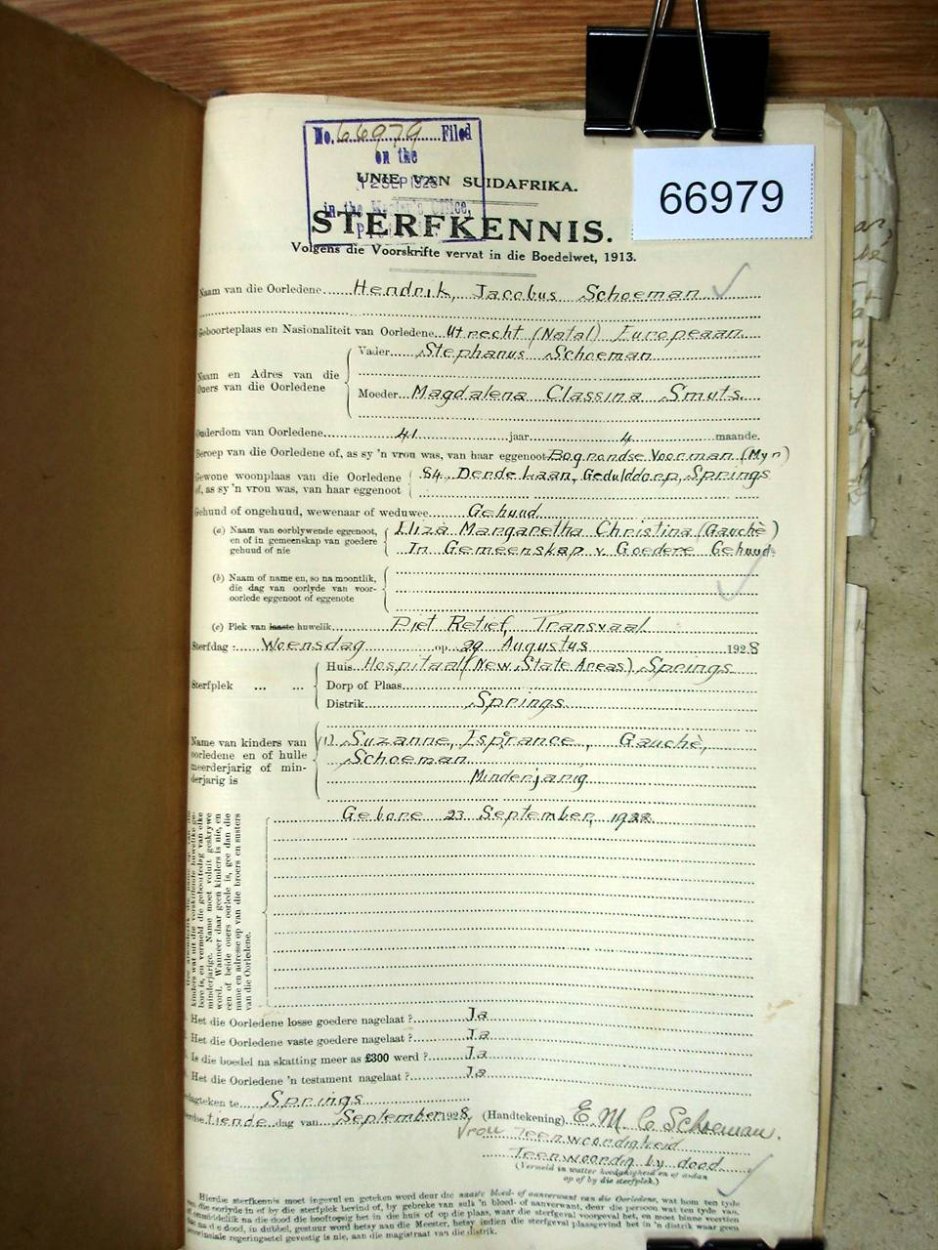 No. 66979 Filed
on the
12 SEP 1928
in the Master's Office,
UNIE VAN SUIDAFRIKA.
66979
STERFKENNIS.
Volgens die Voorskrifte vervat in die Boedelwet, 1913.
Naam van die Oorledene Hendrik Jacobus Schoeman
Geboorteplaas en Nasionaliteit van Oorledene Utrecht (Natal) Europeaan
Naam en Adres van die Ouers van die Oorledene
Vader Stephanus Schoeman
Moeder Magdalena Classina Smuts
Ouderdom van Oorledene 41 jaar 4 maande.
Beroep van die Oorledene of, as sy 'n vrou was, van haar eggenoot Bogrondse Voorman (Myn)
Gewone woonplaas van die Oorledene of, as sy 'n vrou was, van haar eggenoot
84, Derde Laan, Gedulddorp, Springs
Gehuud of ongehuud, wewenaar of weduwee Gehuud
(a) Naam van oorblywende eggenoot, en of in gemeenskap van goedere gehuud of nie
Eliza Margaretha Christina (Gauchè)
In Gemeenskap v Goedere Gehuud
(b) Naam of name en, so na moontlik, die dag van oorlyde van vooroorlede eggenoot of eggenote
(c) Plek van laaste huwelik Piet Retief, Transvaal
Sterfdag: Woensdag op 29 Augustus 1928
Sterfplek
Huis Hospitaal (New State Areas) Springs
Dorp of Plaas
Distrik Springs
Name van kinders van oorledene en of hulle meerderjarig of minderjarig is
(1) Suzanne, Esprance, Gauchè,
Schoeman
Minderjarig
Gebore 23 September, 1922
kinders wat uit die verskillende huwelike gebore is, en vermeld die geboortedag van elke
minderjarige. Name moet voluit geskrywe
word. Wanneer daar geen kinders is nie, en
een of beide ouers oorlede is, gee dan die
name en adresse op van die broers en susters
van die Oorledene.
Het die Oorledene losse goedere nagelaat? Ja
Het die Oorledene vaste goedere nagelaat? Ja
Is die boedel na skatting meer as £300 werd? Ja
Het die Oorledene 'n testament nagelaat? Ja
Springs
tiende dag van September 1928, (Handtekening) E. M. C Schoeman.
Vrou Teenwoordigheid
Teenwoordig by dood
(Vermeld in watter hoedanigheid en of aldan
op of by die sterfplek.)
Hierdie sterfkennis moet ingevul en geteken word deur die naaste bloed- of aanverwant van die Oorledene, wat hom ten tyde
die oorlyde in of by die sterfplek bevind of, by gebreke van sulk 'n bloed- of aanverwant, deur die persoon wat ten tyde van,
onmiddelik na die dood die hooftoesig het in die huis of op die plaas, waar die sterfgeval voorgeval het, en moet binne veertien
na die dood, in dubbel, gestuur word hetsy aan die Meester, hetsy indien die sterfgeval plaasgevind het in 'n distrik waar geen
regeringsetel gevestig is nie, aan die magistraat van die distrik.